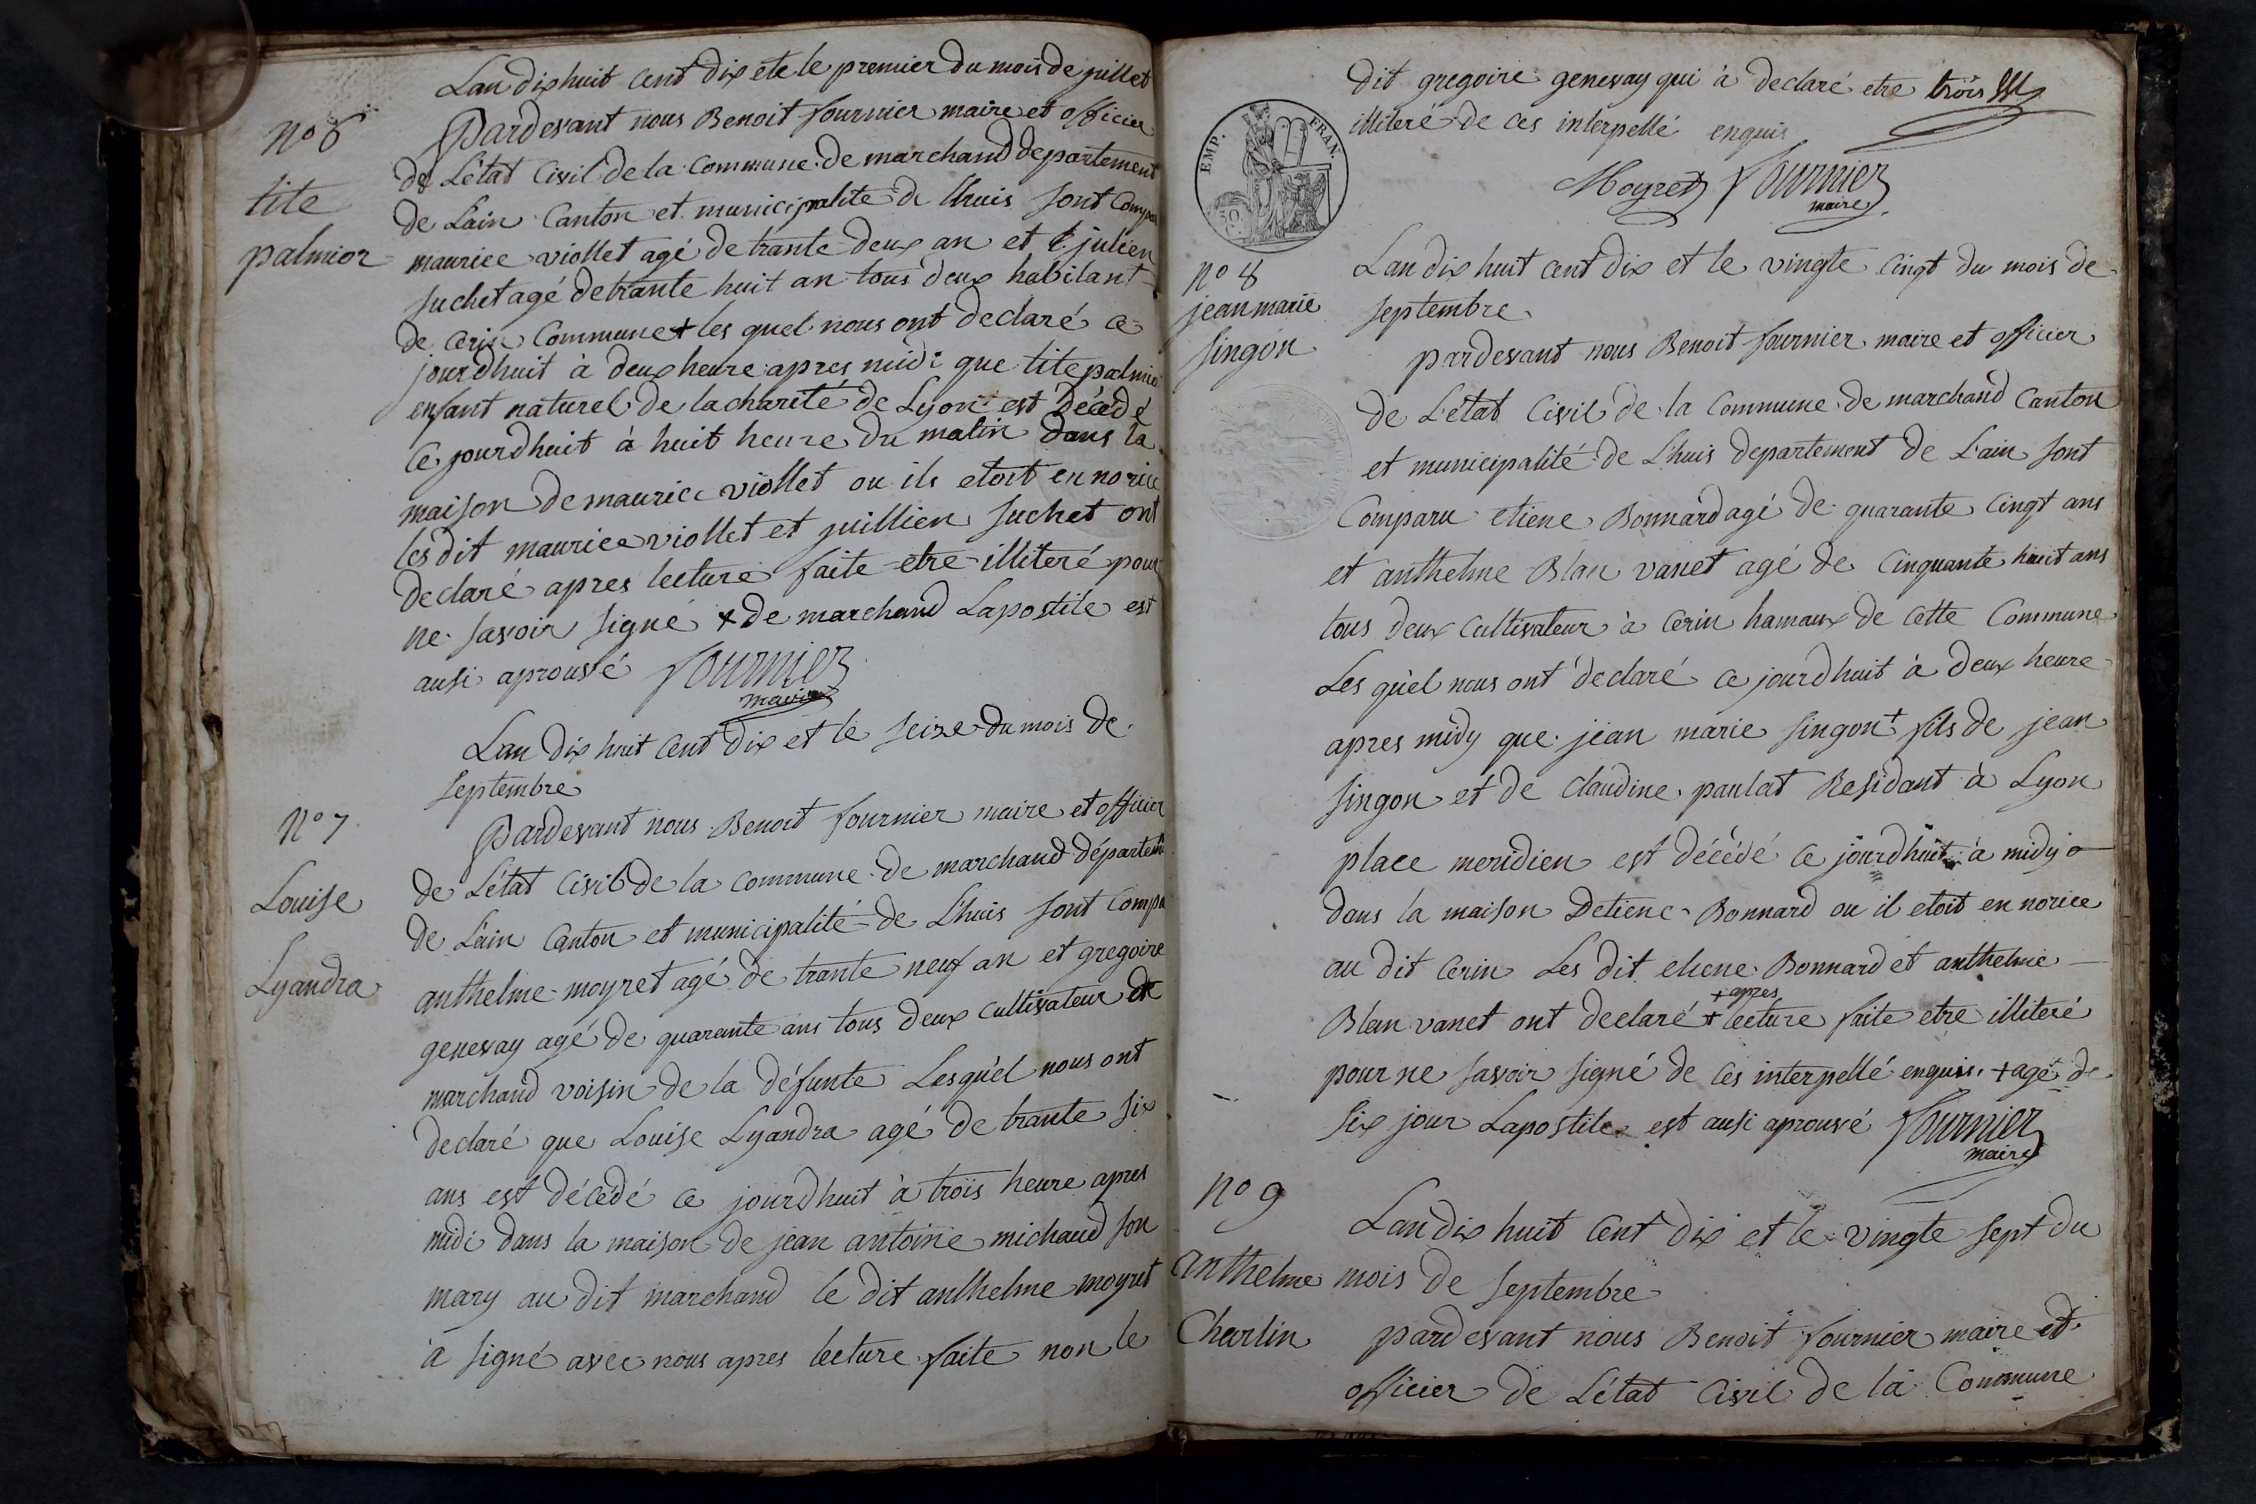 Lan dix huit cent dix et le le premier du mois de juillet
no 6
tite
palmior
Pardevant nous Benoit fournier maire et officier
de L'état Civil de la Commune de marchand departement
de Lain Canton et municipalite de lhuis sont Compa
maurice viollet agé de trante deux an et julien
suchet agé de trante huit an tous deux habitant
de cerin Commune + les quel nous ont declaré ce
jourdhuit à deux heure apres midi que tite palmio
enfant naturel de la charité de Lyon est décédé
ce jourdhuit à huit heure du matin dans la
maison de maurice viollet ou ils etoit en norice
les dit maurice viollet et juillien suchet ont
declaré apres lecture faite etre illiteré pour
ne savoir signé + de marchand Lapostile est
ausi aprouvé fournier
maire
Lan dix huit cent dix et le seize du mois de
septembre
no 7
Louise
Lyandra
Pardevant nous Benoit fournier maire et officier
de L'état Civil de la commune de marchand départem
de L'ain Canton et municipalité de L'huis sont Compa
anthelme moyret agé de trante neuf an et gregoire
genevay agé de quarante ans tous deux cultivateur de
marchand voisin de la défunte Lesquel nous ont
declaré que Louise Lyandra agé de trante six
ans est décédé ce jourdhuit à trois heure apres
midi dans la maison de jean antoine michaud son
mary au dit marchand le dit anthelme moyret
à signé avec nous apres lecture faite non le
dit gregoire genevay qui à declaré etre trois
illiteré de ces interpellé enquis
Moyret fournier
maire
EMP. FRAN.
50
no 8
jean marie
singon
Lan dix huit cent dix et le vingte cingt du mois de
septembre
pardevant nous Benoit fournier maire et officier
de L'état Civil de la Commune de marchand Canton
et municipalité de Lhuis departement de L'ain sont
Comparu etiene Bonnard agé de quarante cingt ans
et anthelme Blan vanet agé de cinquante huit ans
tous deux cultivateur à cerin hamaux de cette Commune
Les quel nous ont declaré ce jourdhuit à deux heure
apres midy que jean marie singon + fils de jean
singon et de Claudine paulat Residant à Lyon
place meridien est décédé ce jourdhuit à midy
dans la maison Detiene Bonnard ou il etoit en norice
au dit cerin Les dit etiene Bonnard et anthelme
+ apres
Blan vanet ont declaré + lecture faite etre illiteré
pour ne savoir signé de ces interpellé enquis + agé de
six jour Lapostile est ausi aprouvé fournier
maire
no 9
anthelme
Charlin
Lan dix huit Cent dix et le vingte sept du
mois de septembre
pardevant nous Benoit fournier maire et
officier de L'état Civil de la Commune